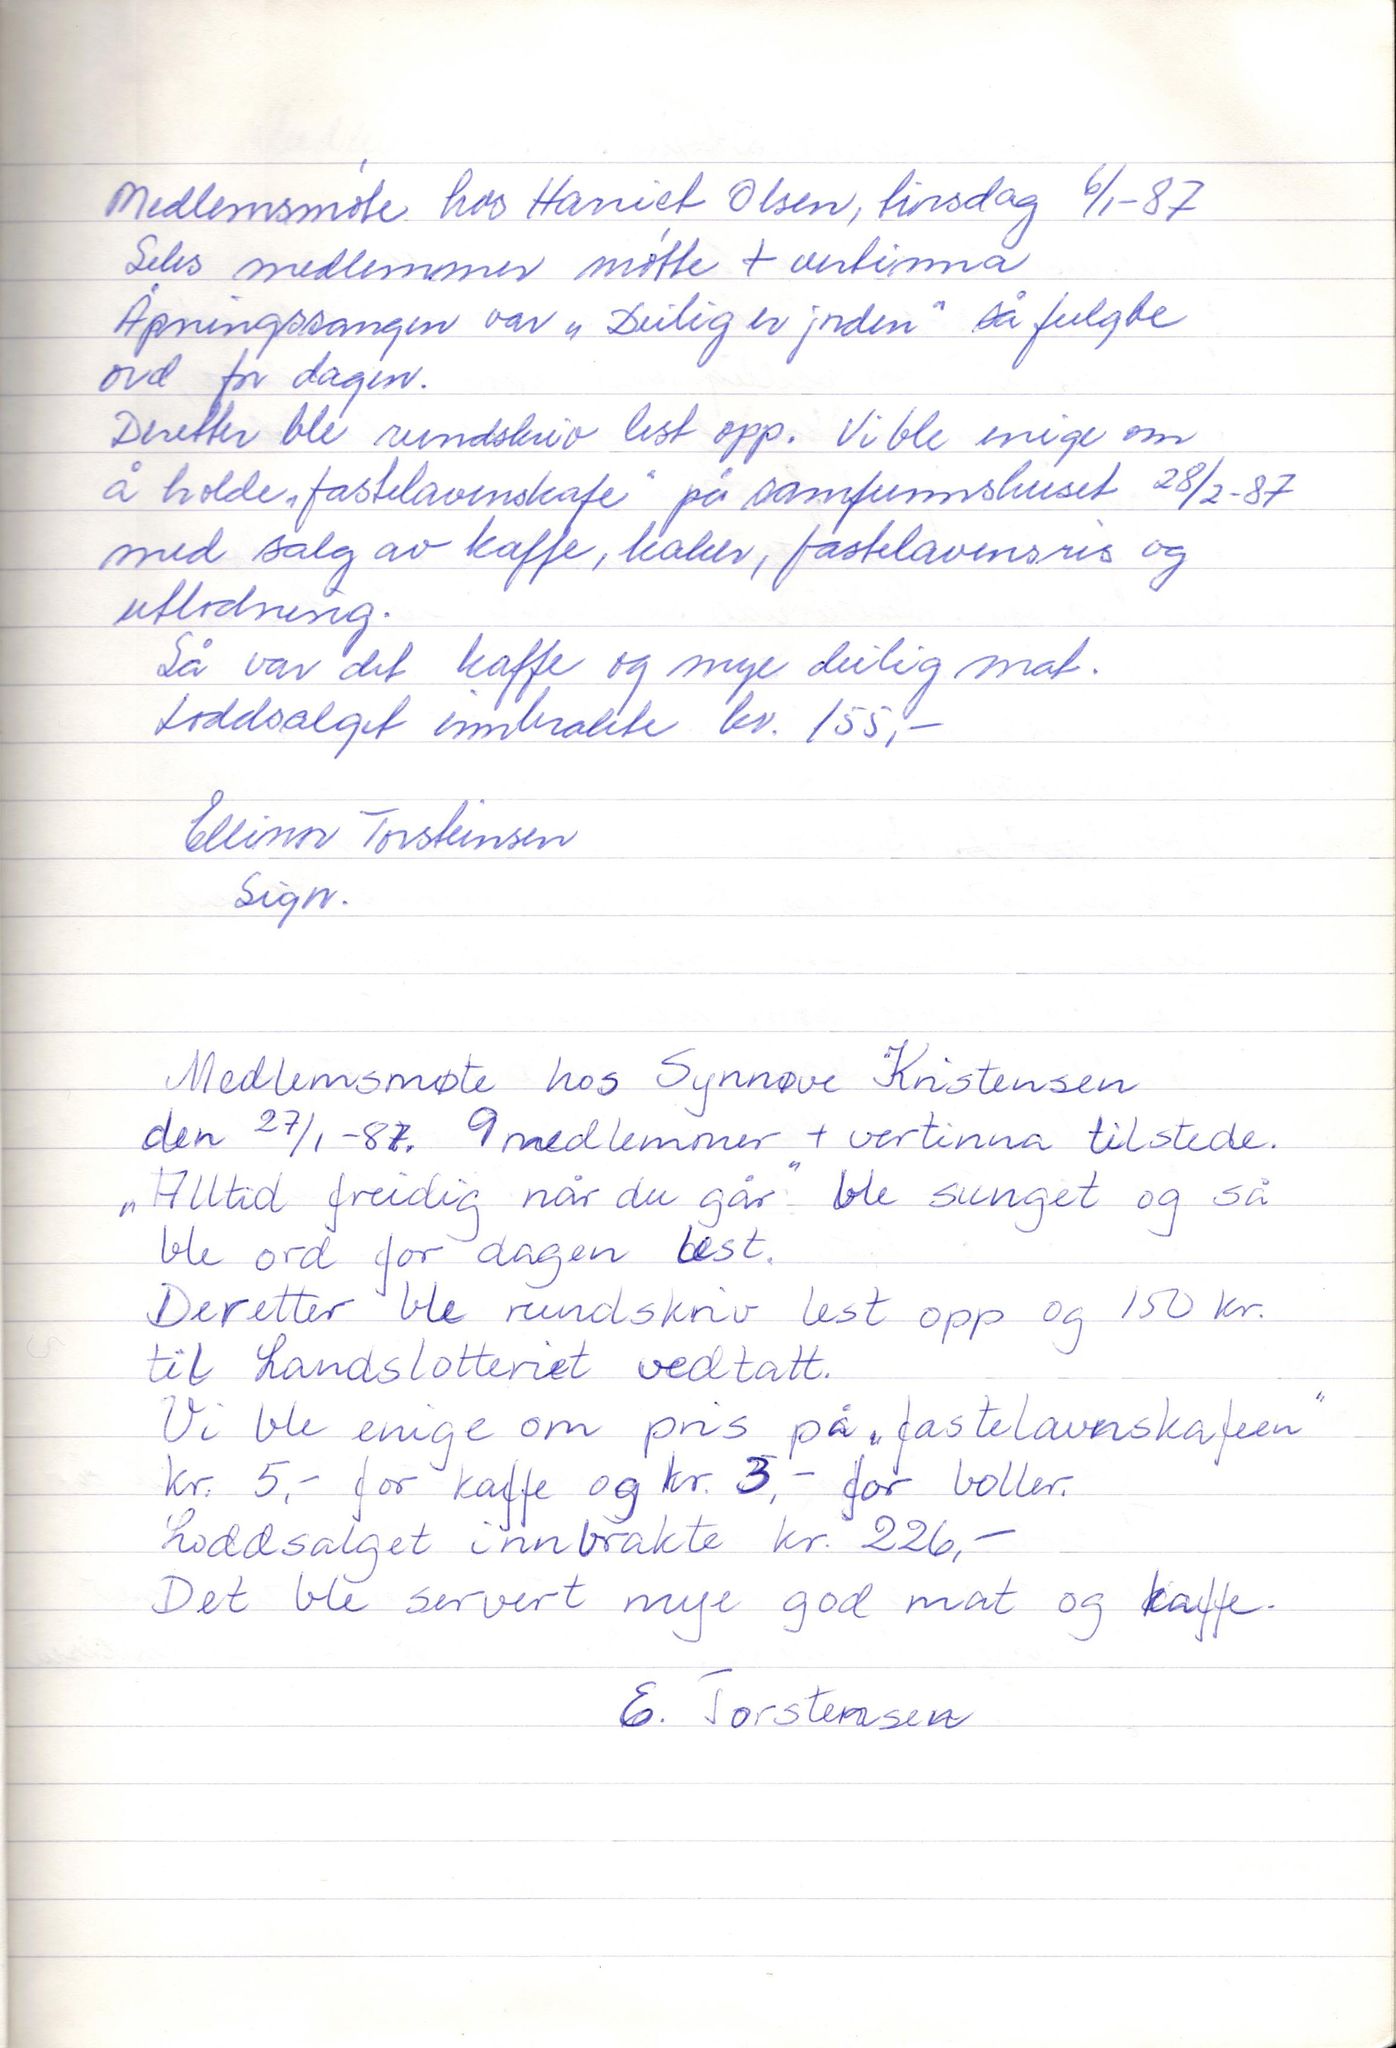 Medlemsmøte hos Harriet Olsen, tirsdag 6/1-87
Seks medlemmer møtte + vertinna
Åpningssangen var „Deilig er jorden" så fulgte
ord for dagen.
Deretter ble rundskriv lest opp. Vi ble enige om
å holde „fastelavenskafe" på samfunnshuset 28/2-87
med salg av kaffe, kaker, fastelavensris og
utlodning.
Så var det kaffe og mye deilig mat.
Loddsalget innbrakte kr. 155,-
Ellinor Torsteinsen
Sign.
Medlemsmøte hos Synnøve Kristensen
den 27/1-87. 9 medlemmer + vertinna tilstede.
„Alltid freidig når du går" ble sunget og så
ble ord for dagen lest.
Deretter ble rundskriv lest opp og 150 kr.
til Landslotteriet vedtatt.
Vi ble enige om pris på „fastelavnskafeen"
kr. 5,- for kaffe og kr. 3,- for boller.
Loddsalget innbrakte kr. 226,-
Det ble servert mye god mat og kaffe.
E. Torsteinsen